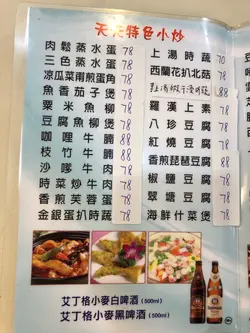 天天特色小炒
肉鬆蒸水蛋 78
三色蒸水蛋 78
涼瓜菜甫煎蛋角 78
魚香茄子煲 78
粟米魚柳 78
豆腐魚柳煲 78
咖喱牛腩 88
枝竹牛腩 88
沙嗲牛肉 78
時菜炒牛肉 78
香煎藕餅 78
金銀蛋扒時蔬 78
上湯時蔬 70
西蘭花扒北菇 78
88
羅漢上素 78
八珍豆腐 78
紅燒豆腐 78
香煎琵琶豆腐 78
椒鹽豆腐 78
翠塘豆腐 78
海鮮什菜煲 78
艾丁格小麥白啤酒 (500ml)
艾丁格小麥黑啤酒 (500ml)